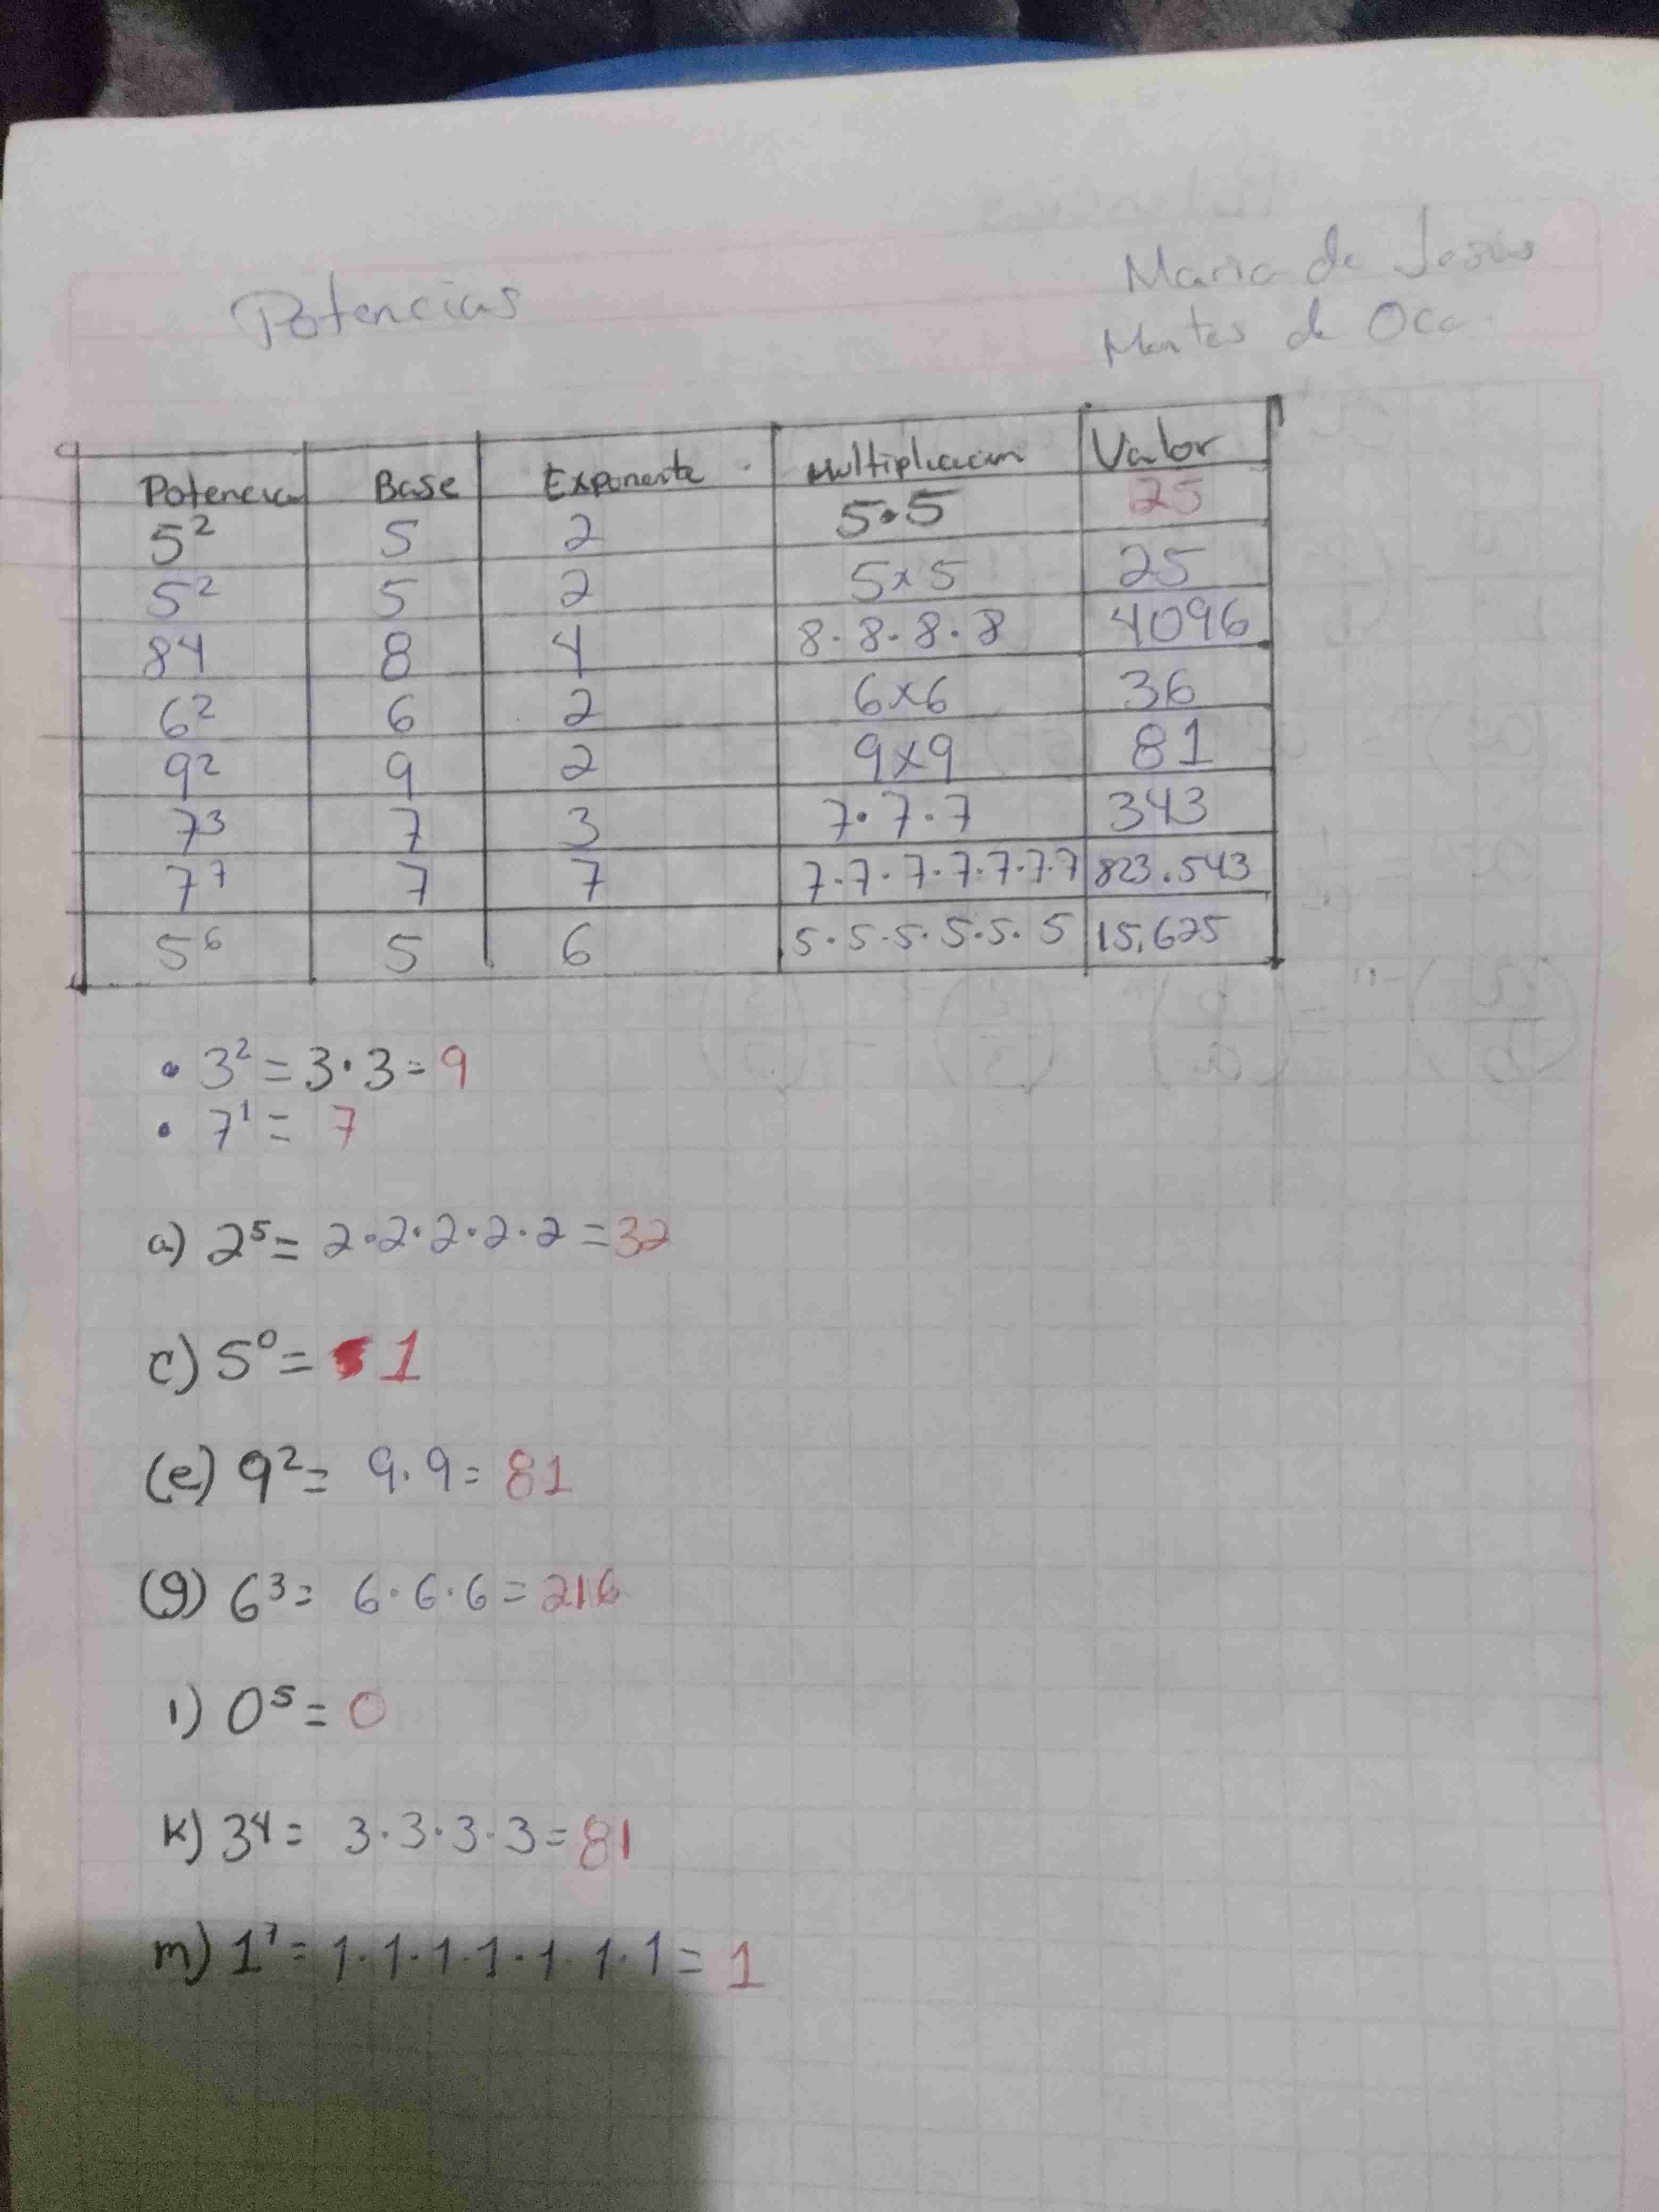 Potencias
Maria de Jesus
Montes de Oca
Potencia Base Exponente Multiplicacion Valor
5² 5 2 5·5 25
5² 5 2 5x5 25
84 8 4 8·8·8·8 4096
6² 6 2 6x6 36
9² 9 2 9x9 81
7³ 7 3 7·7·7 343
7⁷ 7 7 7·7·7·7·7·7·7 823.543
5⁶ 5 6 5·5·5·5·5·5 15,625
• 3² = 3·3 = 9
• 7¹ = 7
a) 2⁵ = 2·2·2·2·2 = 32
c) 5⁰ = 1
(e) 9² = 9·9 = 81
(g) 6³ = 6·6·6 = 216
i) 0⁵ = 0
k) 3⁴ = 3·3·3·3 = 81
m) 1⁷ = 1·1·1·1·1·1·1 = 1